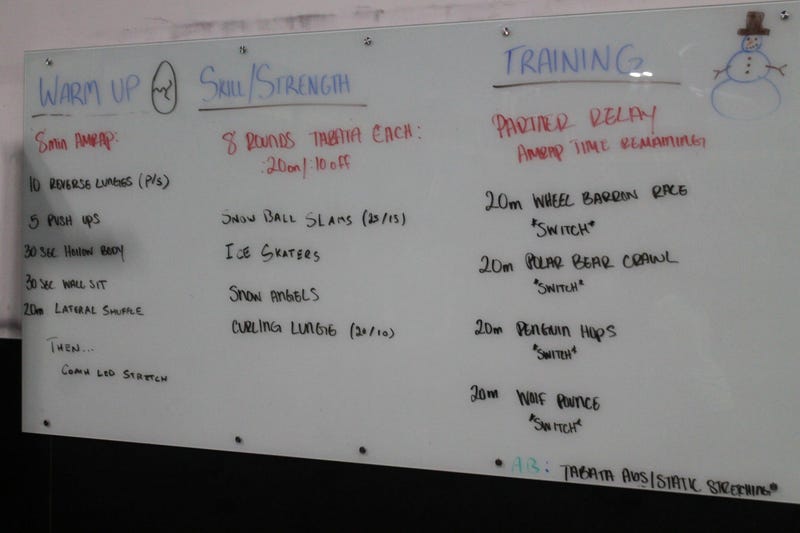 WARM UP
8min AMRAP:
10 REVERSE LUNGES (P/S)
5 PUSH UPS
30 SEC HOLLOW BODY
30 SEC WALL SIT
20m LATERAL SHUFFLE
THEN...
COACH LED STRETCH
SKILL/STRENGTH
8 ROUNDS TABATA EACH:
:20on/:10off
SNOW BALL SLAMS (25/15)
ICE SKATERS
SNOW ANGELS
CURLING LUNGE (20/10)
TRAINING
PARTNER RELAY
AMRAP TIME REMAINING
20m WHEEL BARRON RACE
*SWITCH*
20m POLAR BEAR CRAWL
*SWITCH*
20m PENGUIN HOPS
*SWITCH*
20m WOLF POUNCE
*SWITCH*
AB: TABATA ABS/STATIC STRETCHING*